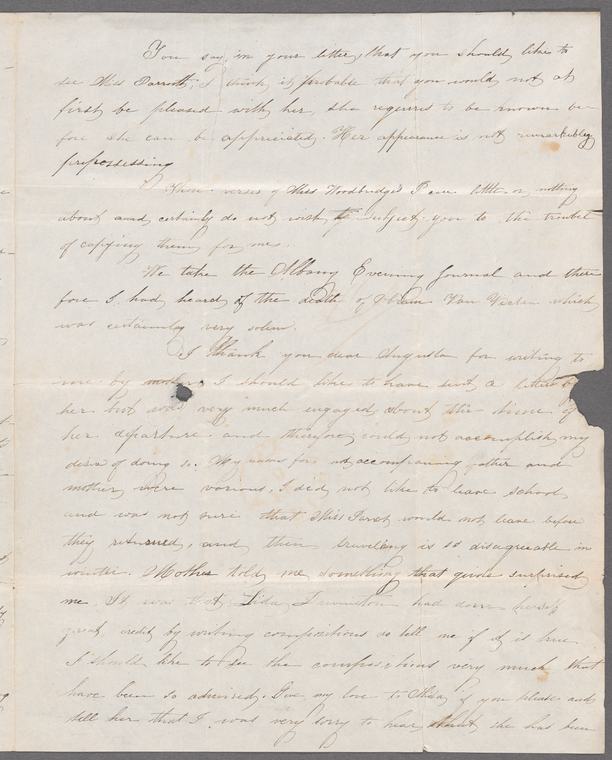 You say in your letter, that you should like to
see Miss Parrott; I think it probable that you would not at
first be pleased with her, she requires to be known be
fore she can be appreciated. Her appearance is not remarkably
prepossessing
Those verses of Miss Woodbridge's I care little or nothing
about and certainly do not wish to subject you to the trouble
of copying them for me.
We take the Albany Evening Journal and there
fore I had heard of the death of Van Vecten which
was certainly very solem.
I thank you dear Augusta for writing to
me by mother, I should like to have sent a letter by
her but was very much engaged about the time of
her departure and therefore could not accomplish my
desire of doing so. My reasons for not accompaning father and
mother were various, I did not like to leave school
and was not sure that Miss Parrot would not leave before
they returned, and then traveling is so disagreeable in
winter. Mother told me something that quite surprised
me. It was that Lida had done herself
great credit by writing compositions do tell me if it is true
I should like to see the compositions very much that
have been so admired. Give my love to if you please and
tell her that I was very sorry to hear that she has been